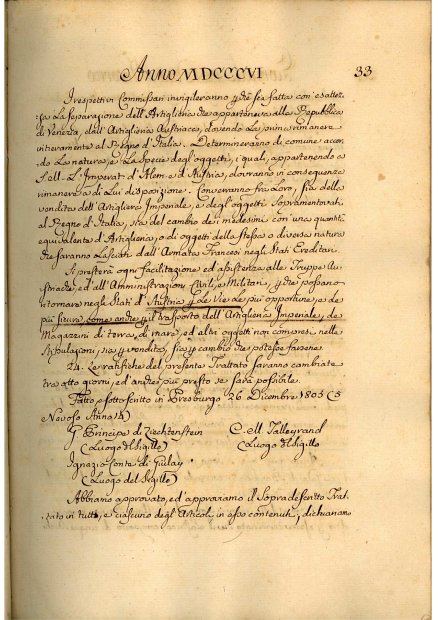 Anno MDCCCVI 33
I respettivi Commissari invigileranno, che sia fatta con esattez-
za la separazione dell'Artiglieria che apparteneva alla Repubblica
di Venezia, dall'Artiglieria Austriaca, dovendo la prima rimanere
interamente al Regno d'Italia. Determineranno di comune accor-
do la natura, e la specie degli oggetti, i quali, appartenendo a
S. M. l'Imperat. d'Alem. e d'Austria, dovranno in conseguenza
rimanere a di Lui disposizione. Converranno fra Loro, sia della
vendita dell'Artiglieria Imperiale, e degli oggetti Sopramentovati,
al Regno d'Italia, sia del cambio de i medesimi con una quantità
equivalente d'Artiglieria, o di oggetti della stessa o diversa natura
che saranno lasciati dall'Armata Francese negli Stati Ereditari.
Si presterà ogni facilitazione ed assistenza alle Truppe Au-
striache, ed all'Amministrazioni Civili, e Militari, che possano
ritornare negli Stati d'Austria per le vie le più opportune, e le
più sicure, come anche per il trasporto dell'Artiglieria Imperiale, de
Magazzini di terra, e di mare, ed altri oggetti non compresi nelle
Stipulazioni, sia per vendita, sia per cambio che potesse farsene
24. Le ratifiche del presente Trattato saranno cambiate
tra otto giorni, ed anche più presto se sarà possibile.
Fatto, e sottoscritto in Presburgo 26 Dicembre 1805 (5
Nevoso Anno 14)
G. Principe di Liechtenstein C. M. Talleyrand
(Luogo del Sigillo) (Luogo del Sigillo
Ignazio Conte di Gulay
(Luogo del Sigillo)
Abbiamo approvato, ed approviamo il Sopradescritto Trat-
tato in tutti, e ciascuno degli Articoli in esso contenuti, dichiariamo